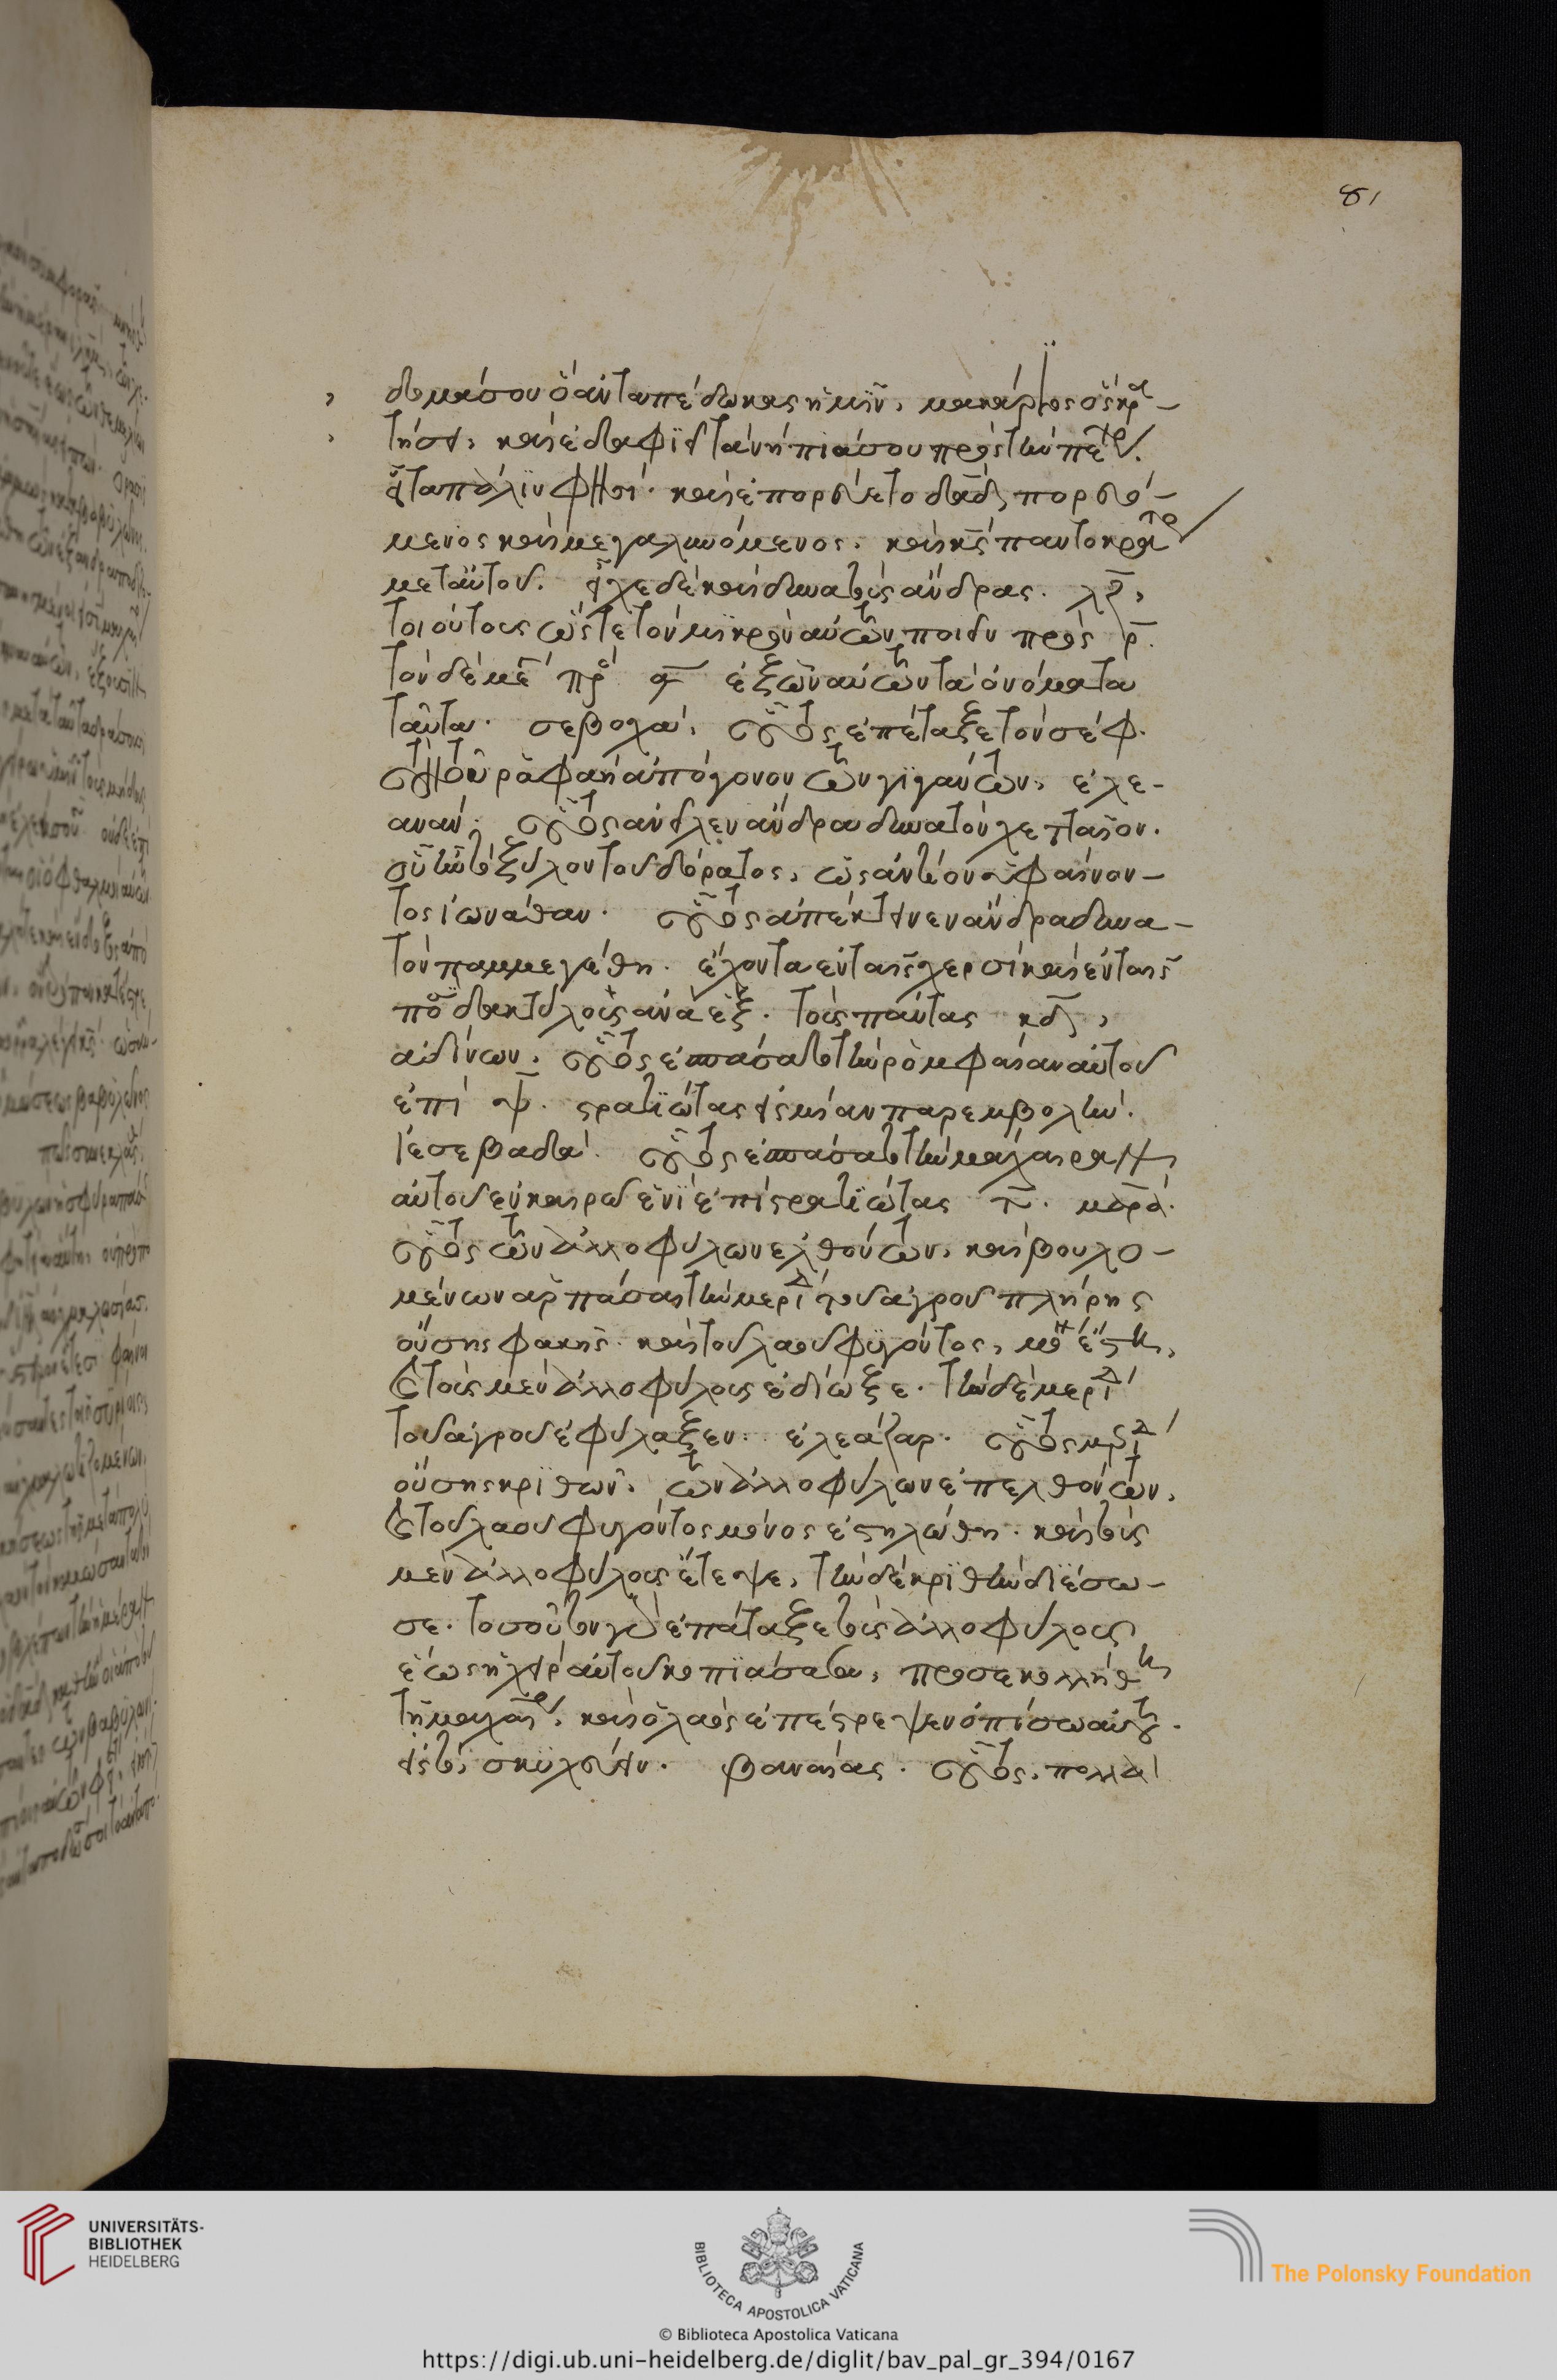 81
δομά σου ὃ ἀνταπέδωκας ἡμῖν, μακάριος ὃς κρα-
τήσει, καὶ ἐδαφιεῖ τὰ νήπιά σου πρὸς τὴν πέτρ.
εἶτα πάλιν φησί. καὶ ἐπορεύετο δᾱδ πορευό-
μενος καὶ μεγαλυνόμενος. καὶ κς̄ παντοκράτωρ
μετ αὐτοῦ. εἶχε δὲ καὶ δυνατοὺς ἄνδρας. λζ̄,
τοιούτους ὥστε τὸν μικρὸν αὐτῶν ποιεῖν πρὸς ρ̄.
τὸν δὲ μέ πρὸ ᾳ ἐξ ὧν αὐτῶν τὰ ὀνόματα
ταῦτα. σεβοχά, οὗτος ἐπάταξε τὸν σέφ.
τοῦ ραφαὴ ἀπόγονον τῶν γιγάντων, ελε-
ανάν. οὗτος ἀνεῖλεν ἄνδρα δυνατὸν χετταῖον.
οὗ ἦν τὸ ξύλον τοῦ δόρατος, ὡς ἀντίον ὑφαίνον-
τος ἰωνάθαν. οὗτος ἀπέκτεινεν ἄνδρα δυνα-
τὸν παμμεγέθη. ἔχοντα ἐν ταῖς χερσὶ καὶ ἐν τοῖς
ποδ δακτύλοις ἀνὰ ἕξ. τοὺς πάντας κδ̄,
ἀδίνων. οὗτος ἐσπάσατο τὴν ρομφαίαν αὐτοῦ
ἐπὶ ω̄. στρατιώτας εἰς μίαν παρεμβολήν.
ἰεσεβαδά. οὗτος ἐσπάσατο τὴν μάχαιραν
αὐτοῦ ἐν καιρῷ ἑνὶ ἐπὶ στρατιώτας τ̄.
οὗτος τῶν ἀλλοφύλων ἐλθόντων, καὶ βουλο-
μένων ἁρπάσαι τὴν μερίδ τοῦ ἀγροῦ πλήρης
οὔσης φακῆς. καὶ τοῦ λαοῦ φυγόντος, μο ἔστη,
καὶ τοὺς μὲν ἀλλοφύλους ἐδίωξε. τὴν δὲ μερίδ
τοῦ ἀγροῦ ἐφύλαξεν. ἐλεάζαρ. οὗτος μερίδ
οὔσης κριθῶν. τῶν ἀλλοφύλων ἐπελθόντων,
καὶ τοῦ λαοῦ φυγόντος μόνος ἐστηλώθη. καὶ τοὺς
μὲν ἀλλοφύλους ἔτεψε, τὴν δὲ κριθὴν διέσω-
σε. τοσοῦτον γὰρ ἐπάταξε τοὺς ἀλλοφύλους
ἕως ἡ χεὶρ αὐτοῦ κοπιάσασα, προσεκολλήθη
τῇ μαχαίρ, καὶ ὁ λαὸς ἐπέστρεψεν ὀπίσω αὐτοῦ.
εἰς τὸ σκυλεύειν. βαναίας. οὗτος, πολλὰ
UNIVERSITÄTS-
BIBLIOTHEK
HEIDELBERG
BIBLIOTECA APOSTOLICA VATICANA
The Polonsky Foundation
© Biblioteca Apostolica Vaticana
https://digi.ub.uni-heidelberg.de/diglit/bav_pal_gr_394/0167